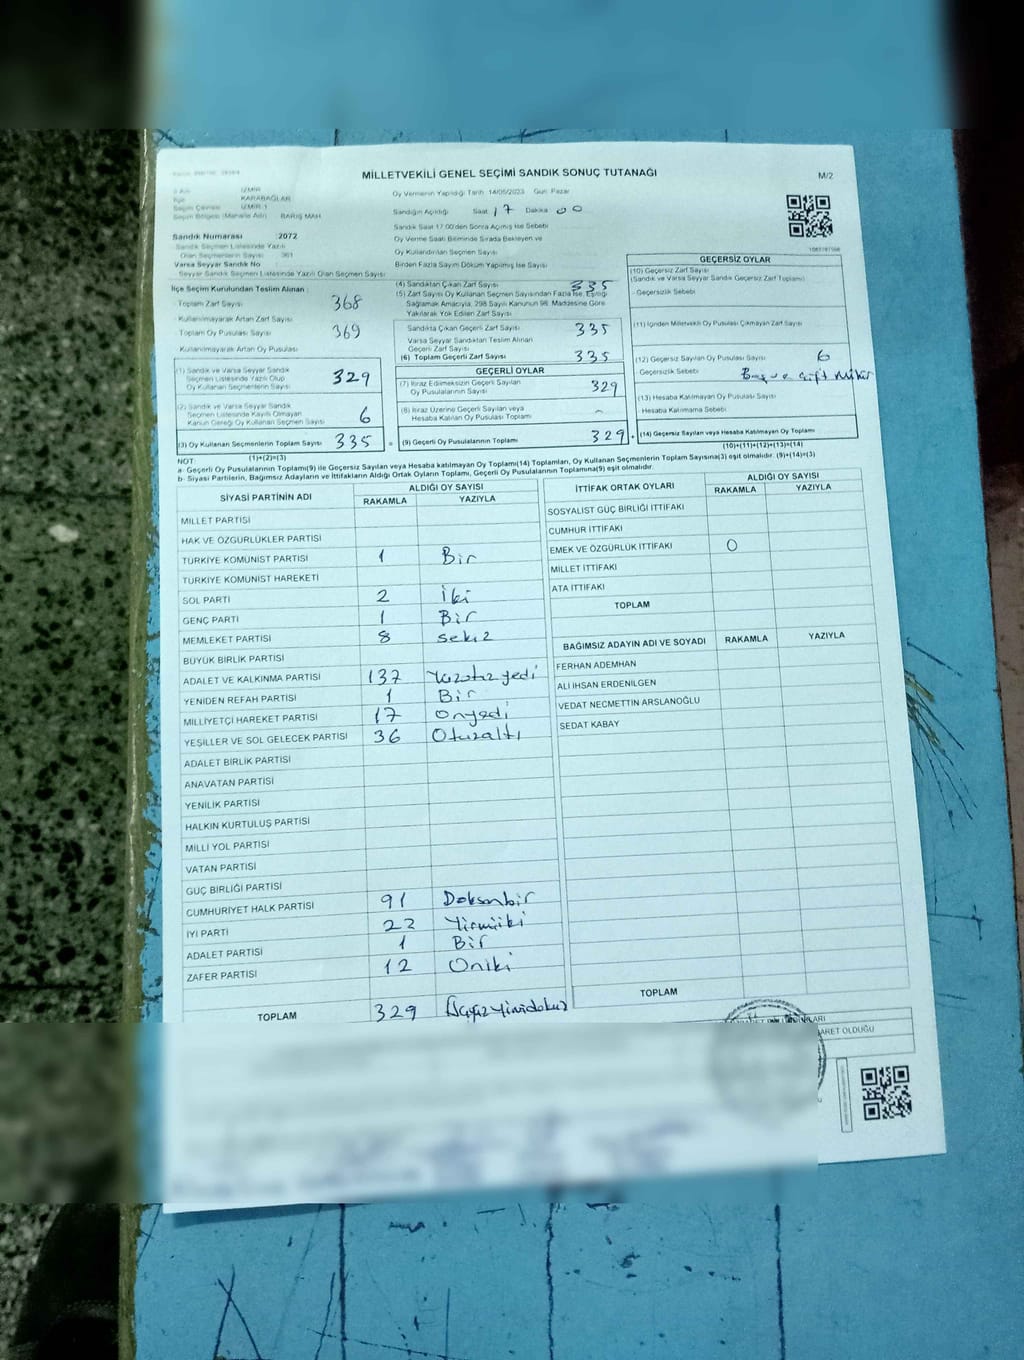 MİLLETVEKİLİ GENEL SEÇİMİ SANDIK SONUÇ TUTANAĞI
M/2
İli Adı İZMİR
İlçe KARABAĞLAR
Seçim Çevresi İZMİR-1
Seçim Bölgesi (Mahalle Adı) BARIŞ MAH.
Sandık Numarası :2072
Sandık Seçmen Listesinde Yazılı
Olan Seçmenlerin Sayısı 361
Varsa Seyyar Sandık No
Seyyar Sandık Seçmen Listesinde Yazılı Olan Seçmen Sayısı
Oy Vermenin Yapıldığı Tarih :14/05/2023 Gün: Pazar
Sandığın Açıldığı Saat 17 Dakika 00
Sandık Saat 17:00'den Sonra Açılmış İse Sebebi
Oy Verme Saati Bitiminde Sırada Bekleyen ve
Oy Kullandırılan Seçmen Sayısı
Birden Fazla Sayım Döküm Yapılmış İse Sayısı
İlçe Seçim Kurulundan Teslim Alınan :
- Toplam Zarf Sayısı 368
- Kullanılmayarak Artan Zarf Sayısı
- Toplam Oy Pusulası Sayısı 369
- Kullanılmayarak Artan Oy Pusulası
(1) Sandık ve Varsa Seyyar Sandık
Seçmen Listesinde Yazılı Olup
Oy Kullanan Seçmenlerin Sayısı 329
(2) Sandık ve Varsa Seyyar Sandık
Seçmen Listesinde Kayıtlı Olmayan
Kanun Gereği Oy Kullanan Seçmen Sayısı 6
(3) Oy Kullanan Seçmenlerin Toplam Sayısı 335
(1)+(2)=(3)
(4) Sandıktan Çıkan Zarf Sayısı 335
(5) Zarf Sayısı Oy Kullanan Seçmen Sayısından Fazla İse, Eşitliği
Sağlamak Amacıyla, 298 Sayılı Kanunun 98. Maddesine Göre
Yakılarak Yok Edilen Zarf Sayısı
Sandıkta Çıkan Geçerli Zarf Sayısı 335
Varsa Seyyar Sandıktan Teslim Alınan
Geçerli Zarf Sayısı
(6) Toplam Geçerli Zarf Sayısı 335
GEÇERLİ OYLAR
(7) İtiraz Edilmeksizin Geçerli Sayılan
Oy Pusulalarının Sayısı 329
(8) İtiraz Üzerine Geçerli Sayılan veya
Hesaba Katılan Oy Pusulası Toplamı -
= (9) Geçerli Oy Pusulalarının Toplamı 329
GEÇERSİZ OYLAR
(10) Geçersiz Zarf Sayısı
(Sandık ve Varsa Seyyar Sandık Geçersiz Zarf Toplamı)
- Geçersizlik Sebebi
(11) İçinden Milletvekili Oy Pusulası Çıkmayan Zarf Sayısı
(12) Geçersiz Sayılan Oy Pusulası Sayısı 6
Geçersizlik Sebebi Boş ve Çift Mühür
(13) Hesaba Katılmayan Oy Pusulası Sayısı
- Hesaba Katılmama Sebebi
+ (14) Geçersiz Sayılan veya Hesaba Katılmayan Oy Toplamı
(10)+(11)+(12)+(13)=(14)
NOT
a- Geçerli Oy Pusulalarının Toplamı(9) ile Geçersiz Sayılan veya Hesaba katılmayan Oy Toplamı(14) Toplamları, Oy Kullanan Seçmenlerin Toplam Sayısına(3) eşit olmalıdır. (9)+(14)=(3)
b- Siyasi Partilerin, Bağımsız Adayların ve İttifakların Aldığı Ortak Oyların Toplamı, Geçerli Oy Pusulalarının Toplamına(9) eşit olmalıdır.
SİYASİ PARTİNİN ADI ALDIĞI OY SAYISI
RAKAMLA YAZIYLA
MİLLET PARTİSİ
HAK VE ÖZGÜRLÜKLER PARTİSİ
TÜRKİYE KOMÜNİST PARTİSİ 1 Bir
TÜRKİYE KOMÜNİST HAREKETİ
SOL PARTİ 2 İki
GENÇ PARTİ 1 Bir
MEMLEKET PARTİSİ 8 Sekiz
BÜYÜK BİRLİK PARTİSİ
ADALET VE KALKINMA PARTİSİ 137 Yüzotuzyedi
YENİDEN REFAH PARTİSİ 1 Bir
MİLLİYETÇİ HAREKET PARTİSİ 17 Onyedi
YEŞİLLER VE SOL GELECEK PARTİSİ 36 Otuzaltı
ADALET BİRLİK PARTİSİ
ANAVATAN PARTİSİ
YENİLİK PARTİSİ
HALKIN KURTULUŞ PARTİSİ
MİLLİ YOL PARTİSİ
VATAN PARTİSİ
GÜÇ BİRLİĞİ PARTİSİ
CUMHURİYET HALK PARTİSİ 91 Doksanbir
İYİ PARTİ 22 Yirmiiki
ADALET PARTİSİ 1 Bir
ZAFER PARTİSİ 12 Oniki
TOPLAM 329 Üçyüzyirmidokuz
İTTİFAK ORTAK OYLARI ALDIĞI OY SAYISI
RAKAMLA YAZIYLA
SOSYALİST GÜÇ BİRLİĞİ İTTİFAKI
CUMHUR İTTİFAKI
EMEK VE ÖZGÜRLÜK İTTİFAKI 0
MİLLET İTTİFAKI
ATA İTTİFAKI
TOPLAM
BAĞIMSIZ ADAYIN ADI VE SOYADI RAKAMLA YAZIYLA
FERHAN ADEMHAN
ALİ İHSAN ERDENİLGEN
VEDAT NECMETTİN ARSLANOĞLU
SEDAT KABAY
TOPLAM
ARET OLDUĞU